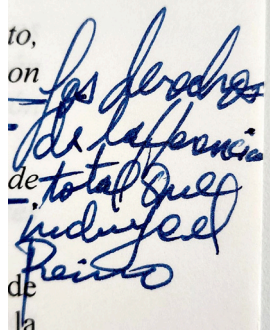 to,
on
de
de
la
Los derechos
de la herencia
total que
incluye el
Reino